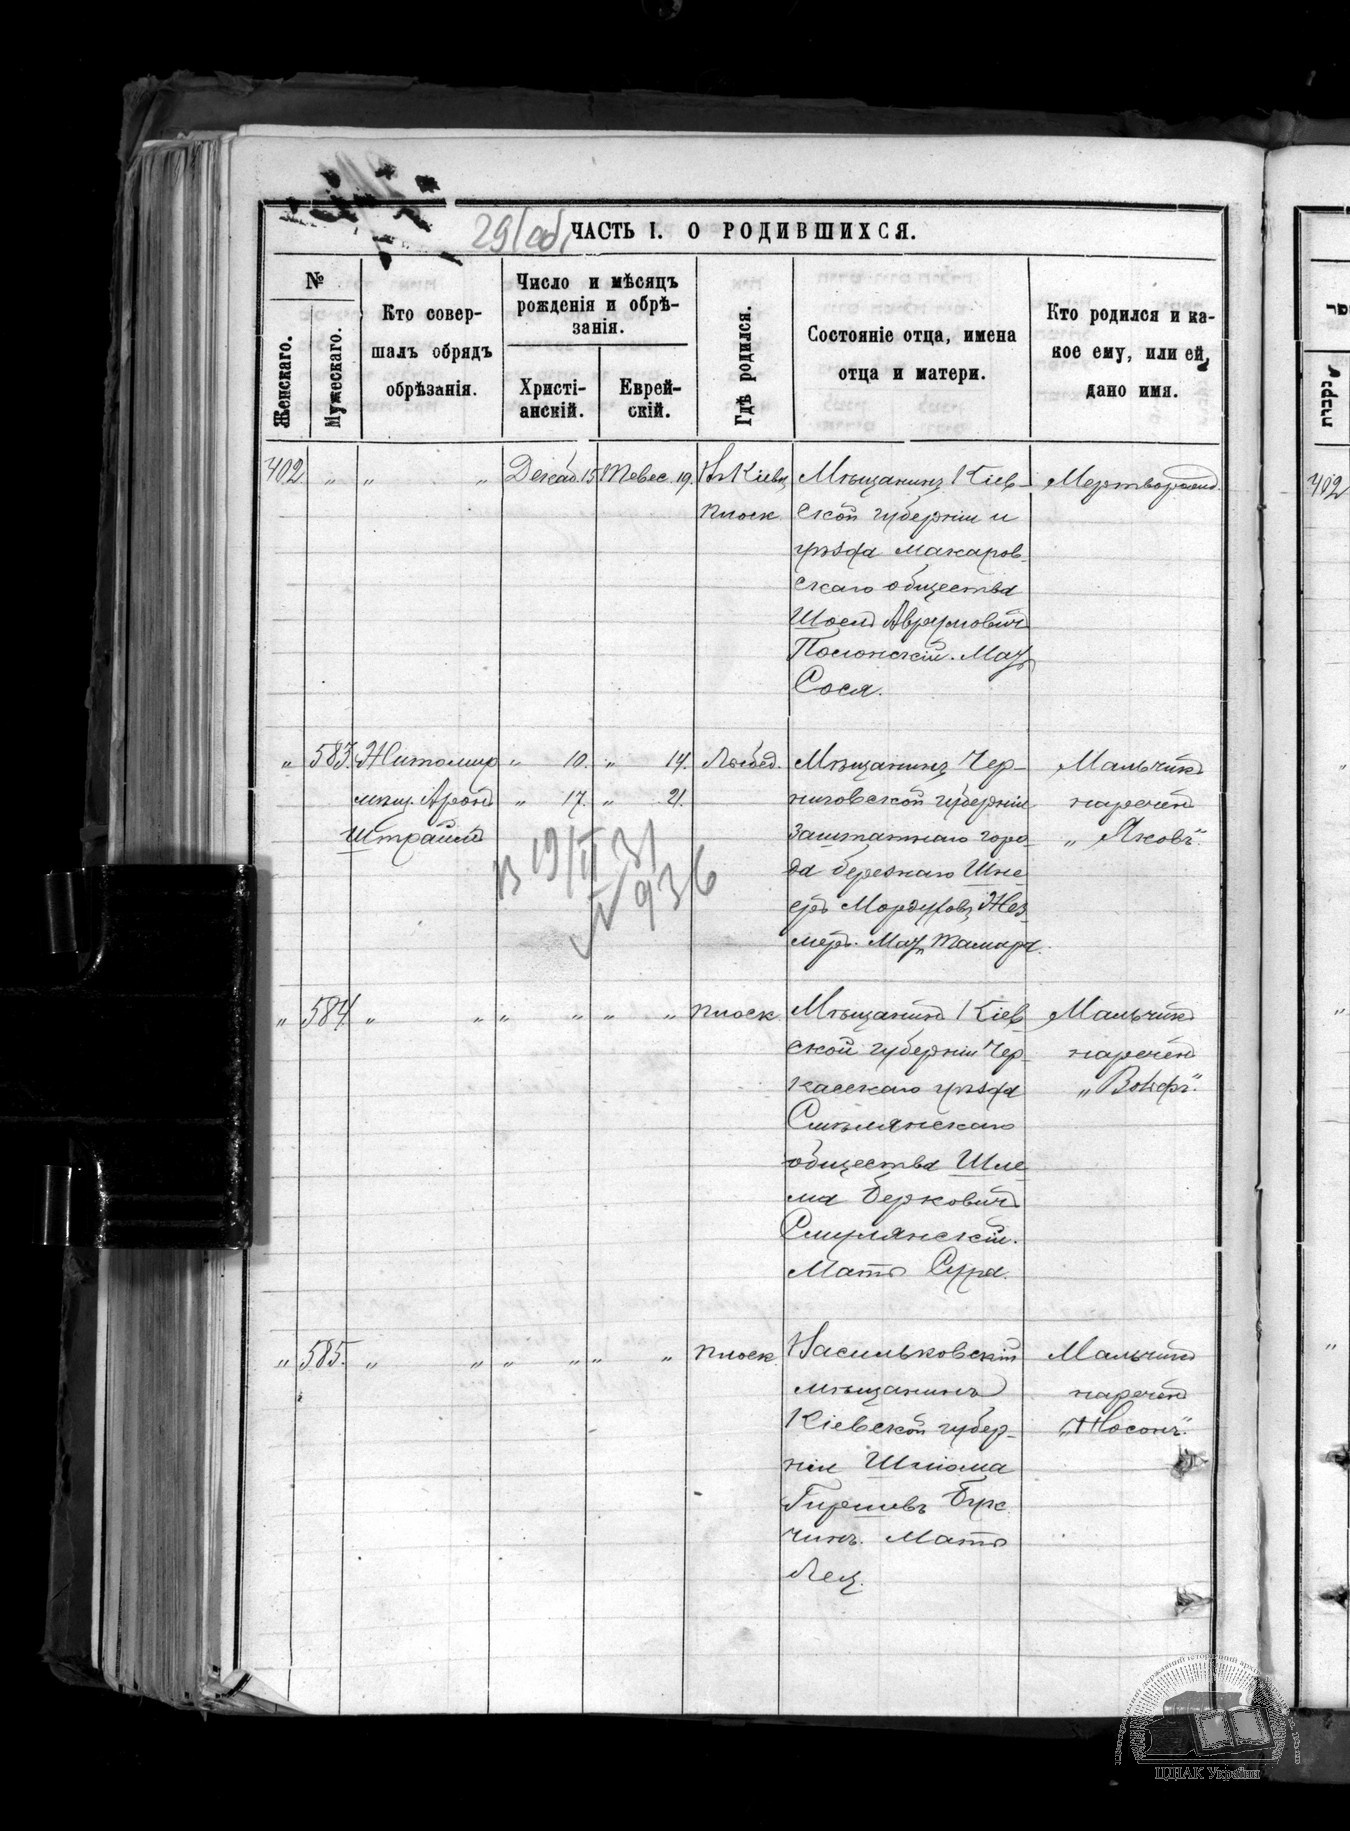 29/об/
ЧАСТЬ I. О РОДИВШИХСЯ.
№
Женскаго.
Мужескаго.
Кто совер-
шалъ обрядъ
обрѣзанія.
Число и мѣсяцъ
рожденія и обрѣ-
занія.
Христі-
анскій.
Еврей-
скій.
Гдѣ родился.
Состояніе отца, имена
отца и матери.
Кто родился и ка-
кое ему, или ей,
дано имя.
402 " " " Декаб. 15 Тевес. 19. Въ Кіевѣ
плоск.
Мѣщанинъ Кіев-
ской губерніи и
уѣзда Макаров-
скаго общества
Авраумовичъ
Полонскій. Мать
Сося.
Мертворожд.
" 583. Житомир.
мѣщ. Аронъ
Штрайме
" 10. " 14.
" 17. " 21.
Лыбед.
Мѣщанинъ Чер-
ниговской губерніи
заштатнаго горо-
да Березнаго Шне-
еръ Мордухов.
Мать Тамара.
Мальчикъ
нареченъ
„Яковъ".
В 19/II 31
№ 936
" 584. " " " " " " плоск.
Мѣщанинъ Кіев-
ской губерніи Чер-
касскаго уѣзда
Смѣлянскаго
общества Шле-
ма Берковичъ
Смулянскій.
Мать Сура.
Мальчикъ
нареченъ
„Вольфъ".
" 585. " " " " " " плоск.
Васильковскій
мѣщанинъ
Кіевской губер-
ніи Шліома
Гиршевъ Бук-
чинъ. Мать
Лея.
Мальчикъ
нареченъ
„Носонъ".
402
ЦДІАК України